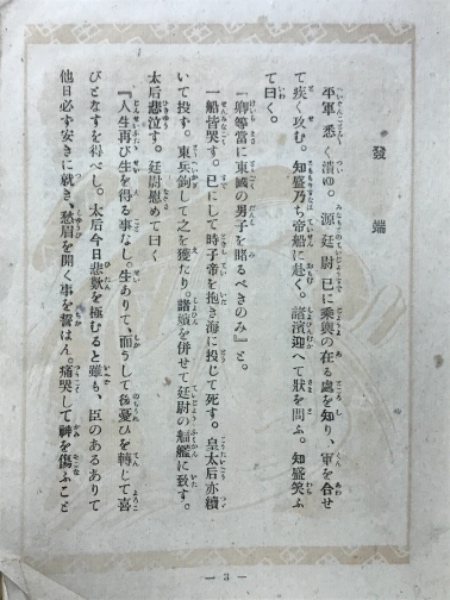 發端
平軍悉く潰ゆ。源廷尉已に乘輿の在る處を知り、軍を合せ
て疾く攻む。知盛乃ち帝船に赴く。諸嬪迎へて狀を問ふ。知盛笑ふ
て曰く。
『卿等當に東國の男子を睹るべきのみ』と。
一船皆哭す。已にして時子帝を抱き海に投じて死す。皇太后亦續
いて投す。東兵鉤して之を獲たり。諸嬪を併せて廷尉の艦に致す。
太后悲泣す。廷尉慰めて曰く
『人生再び生を得る事なし。生ありて、而うして後憂ひを轉して喜
びとなすを得べし。太后今日悲歎を極むると雖も、臣のあるありて
他日必ず安きに就き、愁眉を開く事を誓はん。痛哭して神を傷ふこと
— 3 —